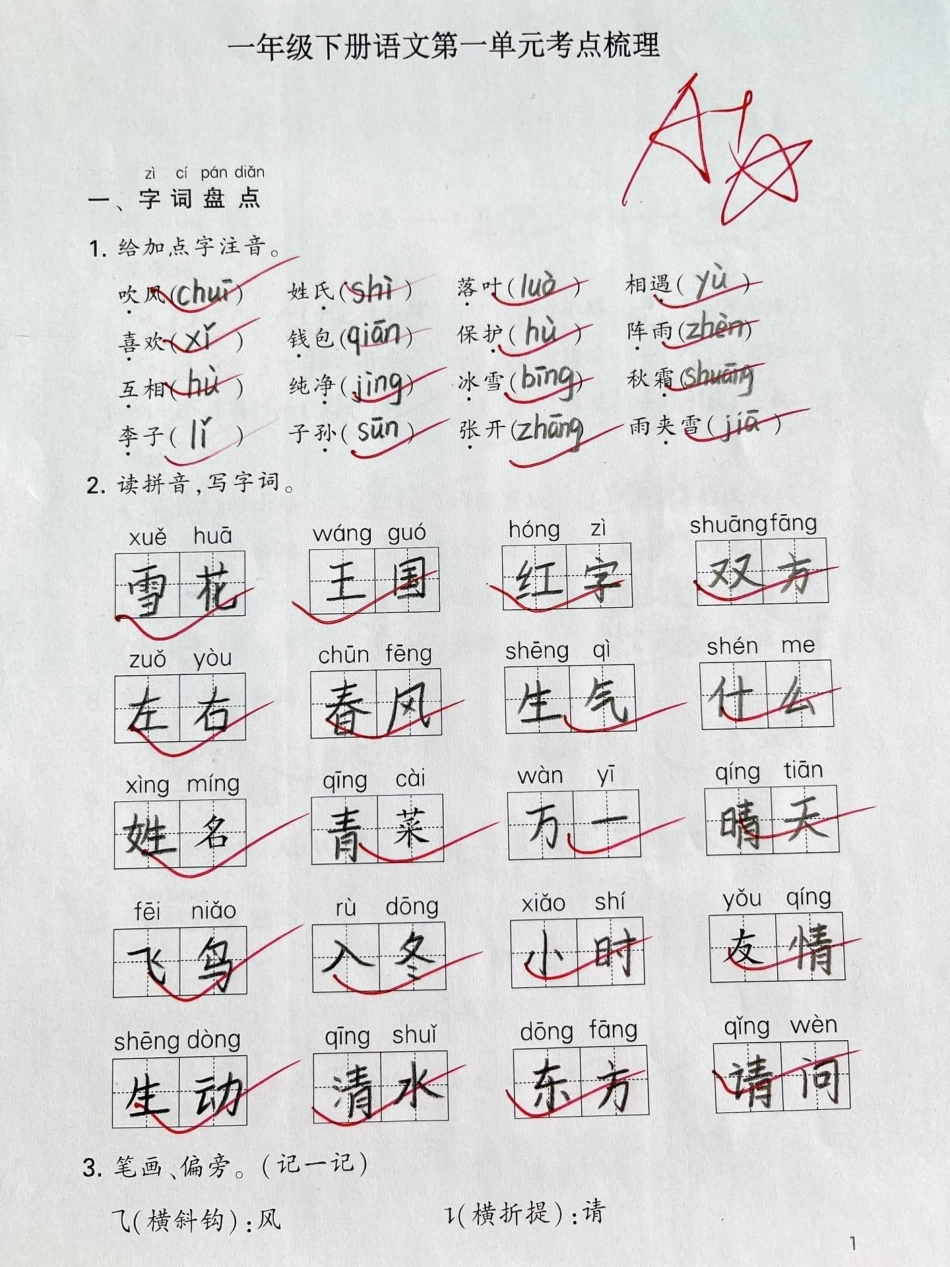 一年级下册语文第一单元考点梳理
A+
zì cí pán diǎn
一、字词盘点
1. 给加点字注音。
吹风(chuī) 姓氏(shì) 落叶(luò) 相遇(yù)
喜欢(xǐ) 钱包(qián) 保护(hù) 阵雨(zhèn)
互相(hù) 纯净(jìng) 冰雪(bīng) 秋霜(shuāng)
李子(lǐ) 子孙(sūn) 张开(zhāng) 雨夹雪(jiā)
2. 读拼音,写字词。
xuě huā wáng guó hóng zì shuāng fāng
雪花 王国 红字 双方
zuǒ yòu chūn fēng shēng qì shén me
左右 春风 生气 什么
xìng míng qīng cài wàn yī qíng tiān
姓名 青菜 万一 晴天
fēi niǎo rù dōng xiǎo shí yǒu qíng
飞鸟 入冬 小时 友情
shēng dòng qīng shuǐ dōng fāng qǐng wèn
生动 清水 东方 请问
3. 笔画、偏旁。(记一记)
⺄(横斜钩):风 ㇊(横折提):请
1